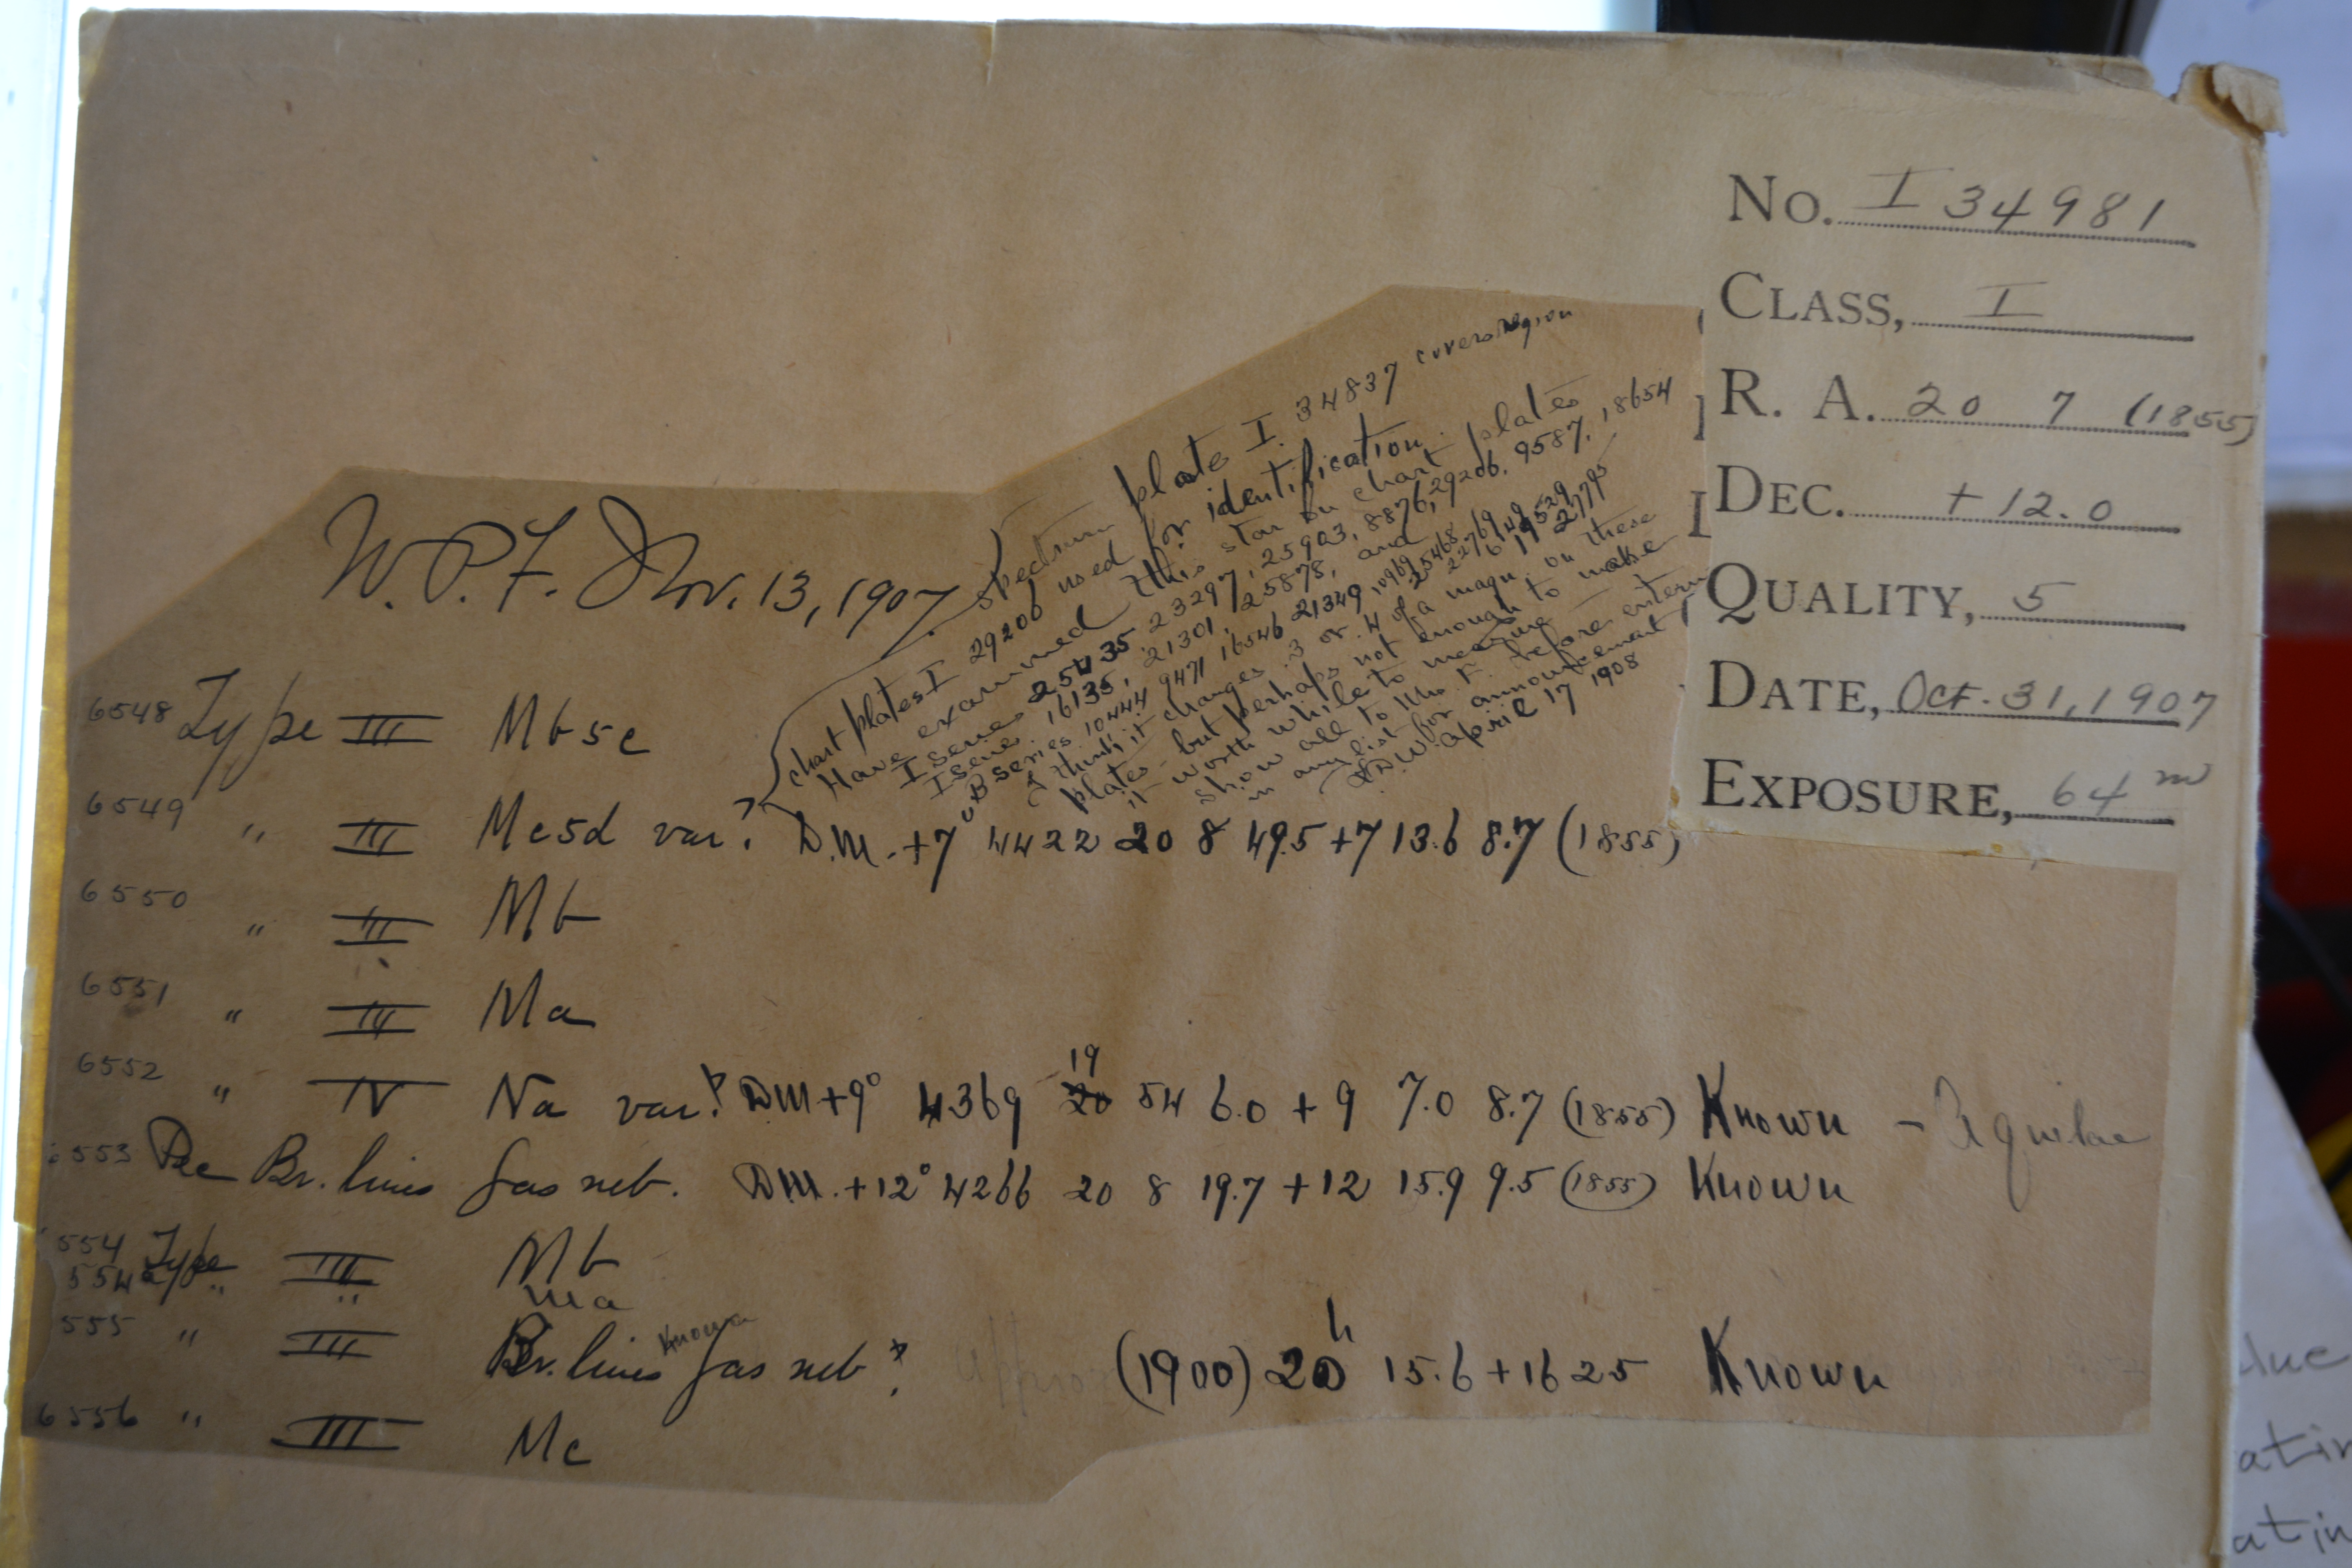 No. I 34981
CLASS, I
R. A. 20 7 (1855)
DEC. +12.0
QUALITY, 5
DATE, Oct. 31, 1907
EXPOSURE, 64 m
W.P.F. Nov. 13, 1907
Spectrum plate I. 34837 covers region
chart plates I 29206 used for identification.
Have examined this star on chart plates
I series 25435 23297, 25903, 8876, 29206, 9587, 18654
I series 16135, 21301, 25878, and
B series 10444 9471 16546 21349
I think it changes .3 or .4 of a magn. on these
plates - but perhaps not enough to make
it worth while to measure
Show all to Mrs. F. before
in any list for announcement
April 17 1908
6548 Type III Mb5c
6549 " III Mc5d var? D.M. +7° 4422 20 8 49.5 +7 13.6 8.7 (1855)
6550 " III Mb
6551 " III Ma
19
6552 " IV Na var? DM +9° 4369 20 54 6.0 + 9 7.0 8.7 (1855) Known - Aquilae
6553 Pec Br. lines Gas neb. DM. +12° 4266 20 8 19.7 +12 15.9 9.5 (1855) Known
554 Type III Mb
554a " " Ma
Known
555 " III Br. lines Gas neb? (1900) 20h 15.6 +16 25 Known
6556 " III Mc
atin
atin